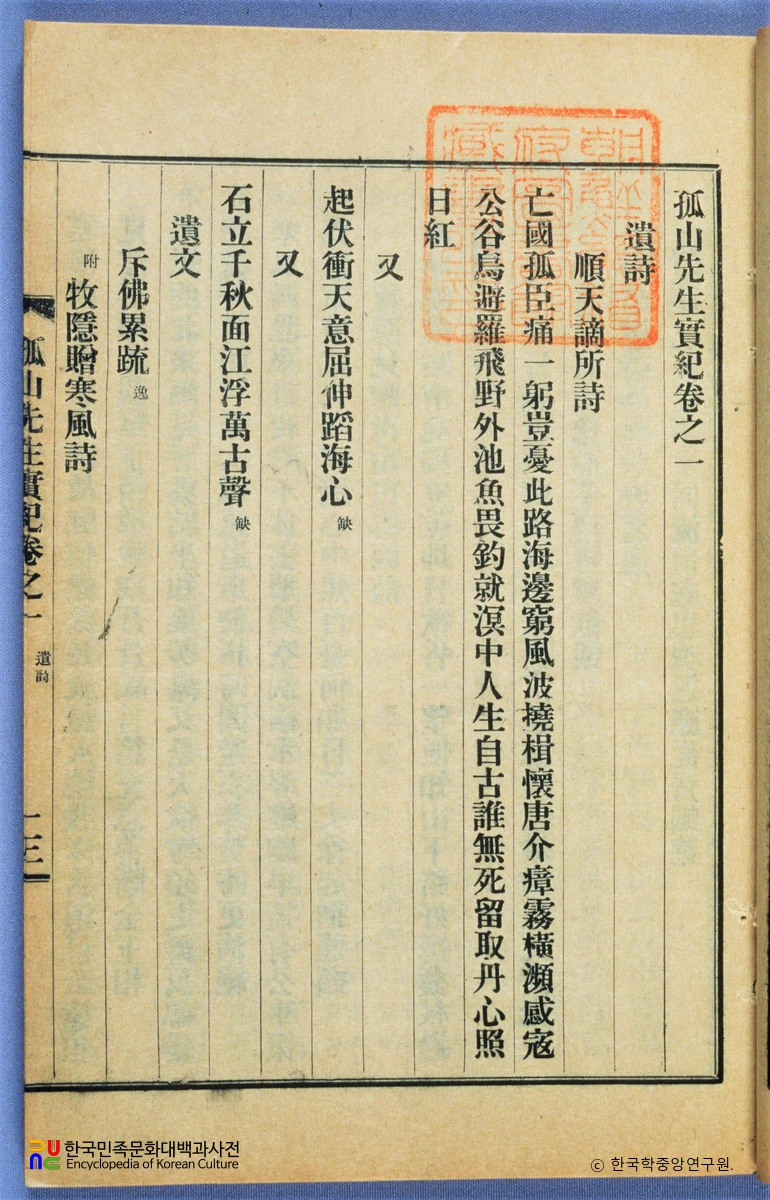 孤山先生實紀卷之一
遺詩
順天謫所詩
亡國孤臣痛一躬豈憂此路海邊窮風波撓楫懷唐介瘴霧橫瀕感寇
公谷鳥避羅飛野外池魚畏釣就溟中人生自古誰無死留取丹心照
日紅
又
起伏衝天意屈伸蹈海心 缺
又
石立千秋面江浮萬古聲 缺
遺文
斥佛累疏 逸
附 牧隱贈寒風詩
孤山先生實紀卷之一 遺詩
한국민족문화대백과사전
Encyclopedia of Korean Culture
© 한국학중앙연구원.